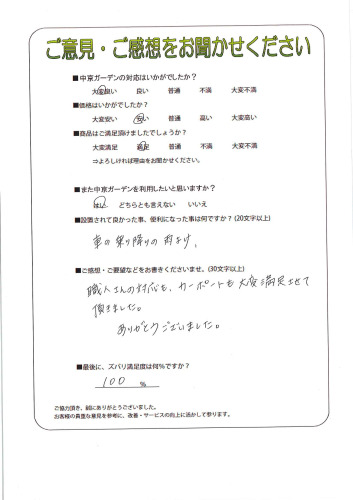 ご意見・ご感想をお聞かせください
■中京ガーデンの対応はいかがでしたか？
大変良い 良い 普通 不満 大変不満
■価格はいかがでしたか？
大変安い 安い 普通 高い 大変高い
■商品はご満足頂けましたでしょうか？
大変満足 満足 普通 不満 大変不満
⇒よろしければ理由をお聞かせください。
■また中京ガーデンを利用したいと思いますか？
はい どちらとも言えない いいえ
■設置されて良かった事、便利になった事は何ですか？(20文字以上)
車の乗り降りの雨よけ。
■ご感想・ご要望などをお書きくださいませ。(30文字以上)
職人さんの対応も、カーポートも大変満足させて
頂きました。
ありがとうございました。
■最後に、ズバリ満足度は何％ですか？
100 ％
ご協力頂き、誠にありがとうございました。
お客様の貴重な意見を参考に、改善・サービスの向上に活かして参ります。